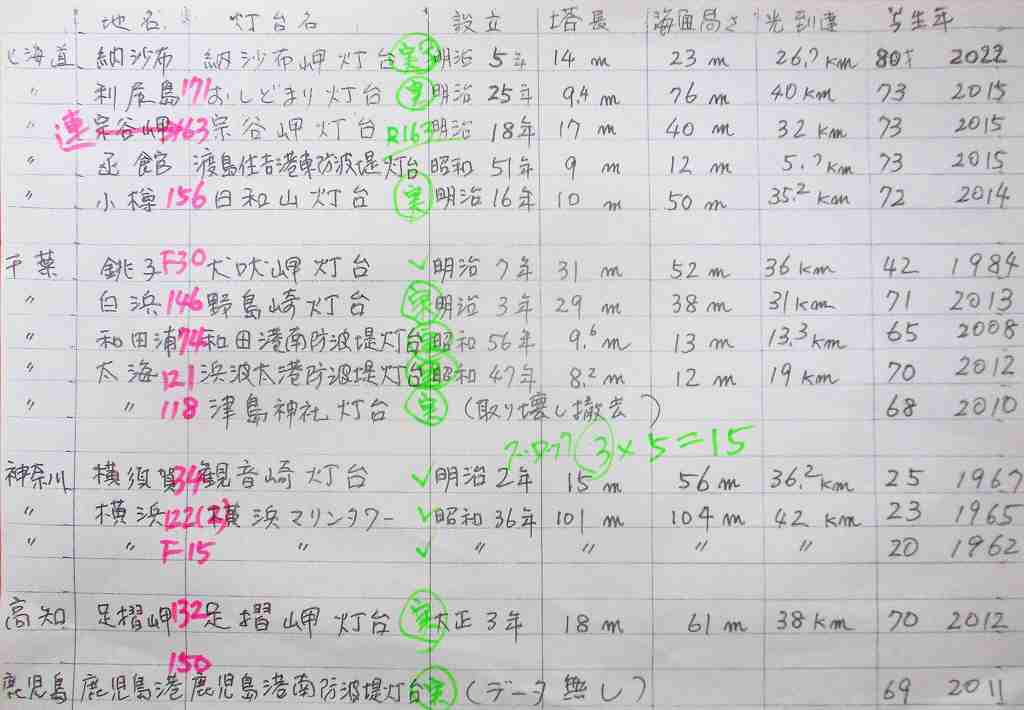 地名 灯台名 設立 塔長 海面高さ 光到達 写生年
北海道 納沙布 納沙布岬灯台 実 明治 5年 14 m 23 m 26.7 km 80才 2022
〃 利尻島 171 おしどまり灯台 実 明治 25年 9.4 m 76 m 40 km 73 2015
〃 連 宗谷岬 163 宗谷岬灯台 R163 明治 18年 17 m 40 m 32 km 73 2015
〃 函館 渡島住吉港東防波堤灯台 昭和 51年 9 m 12 m 5.7 km 73 2015
〃 小樽 156 日和山灯台 実 明治 16年 10 m 50 m 35.2 km 72 2014
千葉 銚子 F30 犬吠岬灯台 ✓ 明治 7年 31 m 52 m 36 km 42 1984
〃 白浜 146 野島崎灯台 実 明治 3年 29 m 38 m 31 km 71 2013
〃 和田浦 74 和田港南防波堤灯台 昭和 56年 9.6 m 13 m 13.3 km 65 2008
〃 太海 121 浜波太港防波堤灯台 昭和 47年 8.2 m 12 m 19 km 70 2012
〃 〃 118 津島神社灯台 実 (取り壊し撤去) 68 2010
3×5=15
神奈川 横須賀 34 観音崎灯台 ✓ 明治 2年 15 m 56 m 36.2 km 25 1967
〃 横浜 122(2) 横浜マリンタワー ✓ 昭和 36年 101 m 104 m 42 km 23 1965
〃 〃 F15 〃 ✓ 〃 〃 〃 〃 20 1962
高知 足摺岬 132 足摺岬灯台 実 大正 3年 18 m 61 m 38 km 70 2012
150
鹿児島 鹿児島港 鹿児島港南防波堤灯台 実 (データ無し) 69 2011